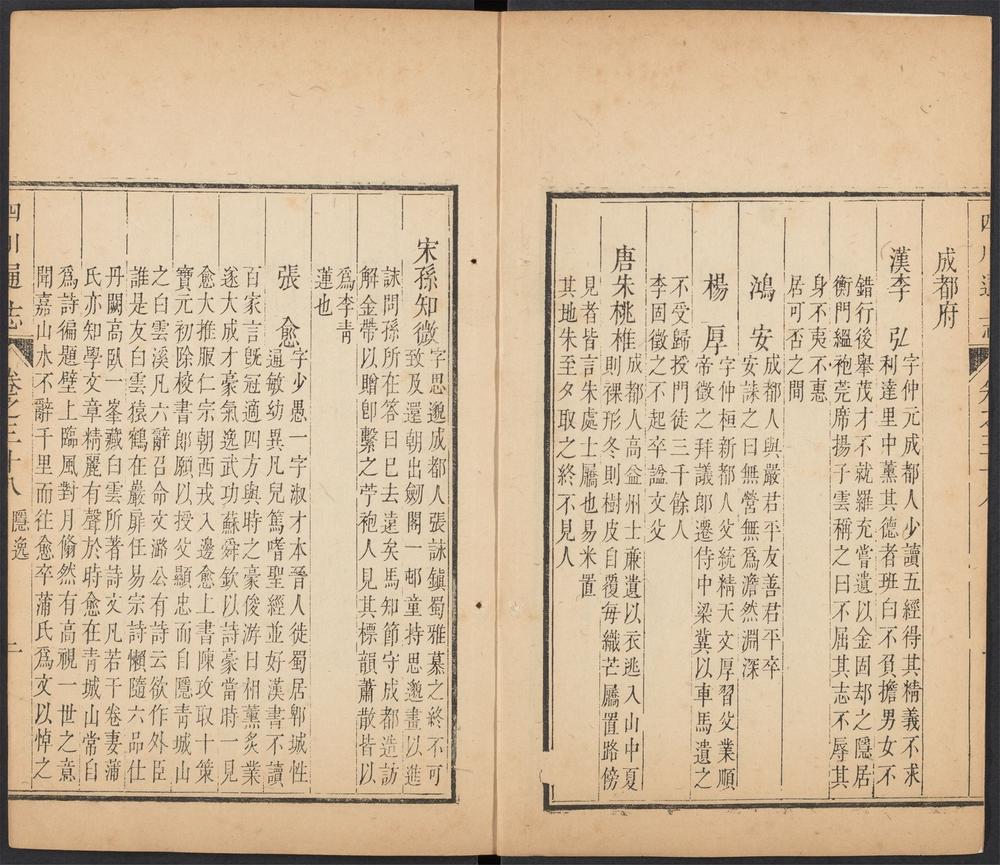 成都府
漢李弘字仲元成都人少讀五經得其精義不求
利達里中薰其德者班白不負擔男女不
錯行後舉茂才不就羅充嘗遺以金固却之隱居
衡門緼袍莞席揚子雲稱之曰不屈其志不辱其
身不夷不惠
居可否之間
鴻安成都人與嚴君平友善君平卒
安誄之曰無營無爲澹然淵深
楊厚字仲桓新都人父統精天文厚習父業順
帝徵之拜議郎遷侍中梁冀以車馬遺之
不受歸投門徒三千餘人
李固徵之不起卒諡文父
唐朱桃椎成都人高益州士亷遺以衣逃入山中夏
則裸形冬則樹皮自覆每織芒屩置路傍
見者皆言朱處士屩也易米置
其地朱至夕取之終不見人
宋孫知微字思邈成都人張詠鎮蜀雅慕之終不可
致及還朝出劒閣一邨童持思邈畫以進
詠問孫所在答曰已去遠矣馬知節守成都造訪
解金帶以贈卽繫之苧袍人見其標韻蕭散皆以
爲李青
蓮也
張愈字少愚一字淑才本晉人徙蜀居郫城性
通敏幼異凡兒篤嗜聖經並好漢書不讀
百家言旣冠適四方與時之豪俊游日相薰炙業
遂大成才豪氣逸武功蘇舜欽以詩豪當時一見
愈大推服仁宗朝西戎入邊愈上書陳攻取十策
寶元初除校書郎願以授父顯忠而自隱靑城山
之白雲溪凡六辭召命文潞公有詩云欲作外臣
誰是友白雲猿鶴在巖扉任易宗詩懶隨六品仕
丹闕高臥一峯藏白雲所著詩文凡若干卷妻蒲
氏亦知學文章精麗有聲於時愈在靑城山常自
爲詩徧題壁上臨風對月翛然有高視一世之意
聞嘉山水不辭千里而往愈卒蒲氏爲文以悼之
四川通志 卷之三十八 隱逸 一